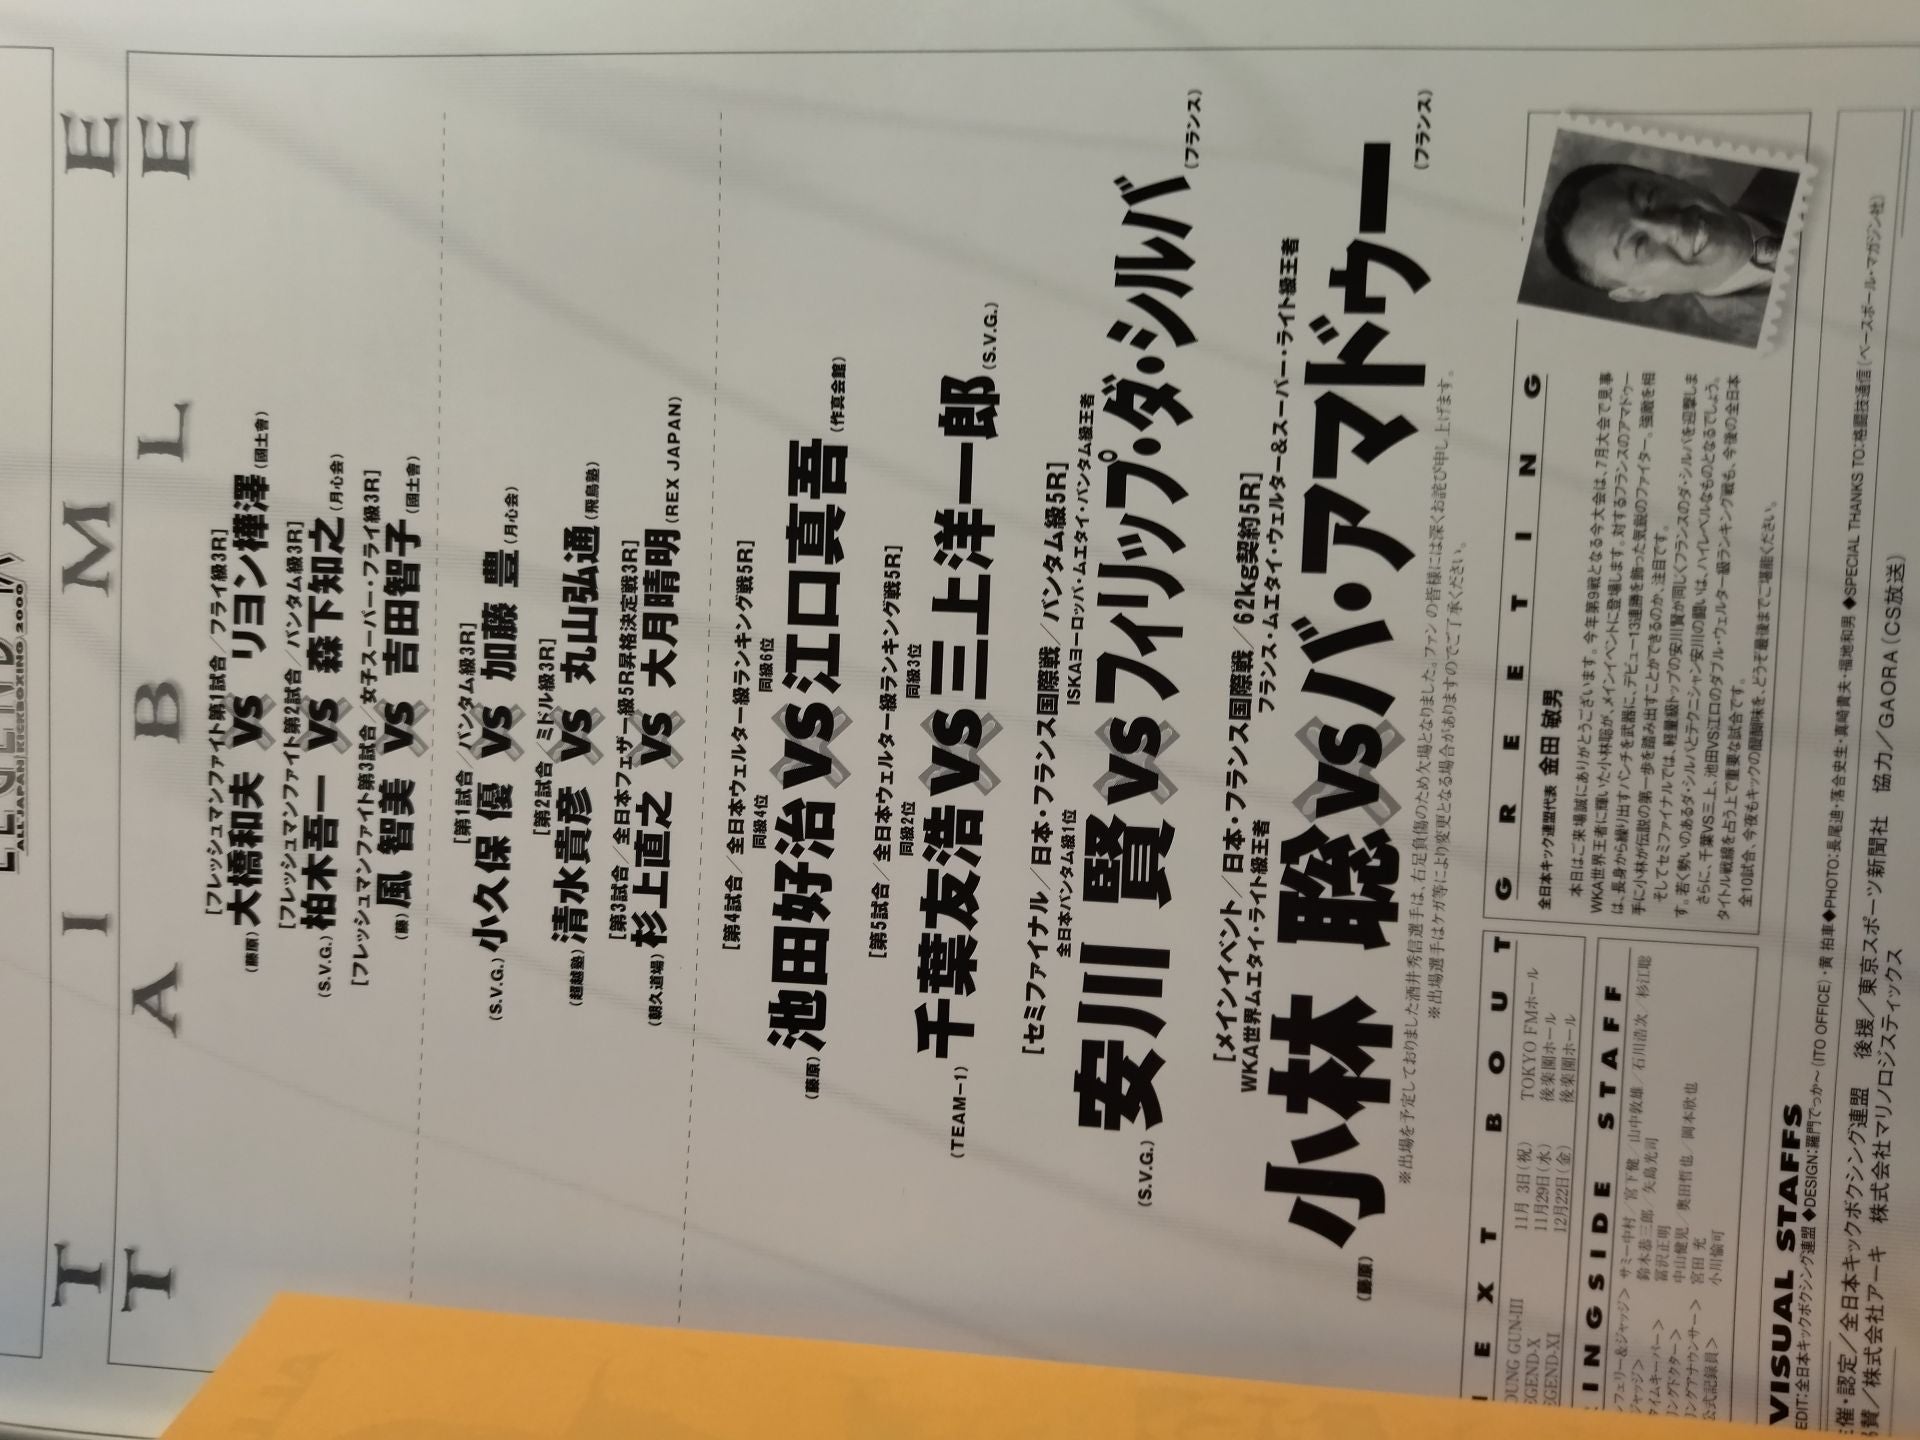 ALL JAPAN KICKBOXING 2000
TIME
TABLE
[フレッシュマンファイト第1試合／フライ級3R]
(藤原) 大橋和夫 vs リヨン樺澤 (國士會)
[フレッシュマンファイト第2試合／バンタム級3R]
(S.V.G.) 柏木吾一 vs 森下知之 (月心会)
[フレッシュマンファイト第3試合／女子スーパー・フライ級3R]
(藤) 風 智美 vs 吉田智子 (國士會)
[第1試合／バンタム級3R]
(S.V.G.) 小久保 優 vs 加藤 豊 (月心会)
[第2試合／ミドル級3R]
(超越塾) 清水貴彦 vs 丸山弘通 (飛鳥塾)
[第3試合／全日本フェザー級5R昇格決定戦3R]
(朝久道場) 杉上直之 vs 大月晴明 (REX JAPAN)
[第4試合／全日本ウェルター級ランキング戦5R]
同級4位 同級6位
(藤原) 池田好治 vs 江口真吾 (作真会館)
[第5試合／全日本ウェルター級ランキング戦5R]
同級2位 同級3位
(TEAM-1) 千葉友浩 vs 三上洋一郎 (S.V.G.)
[セミファイナル／日本・フランス国際戦／バンタム級5R]
全日本バンタム級1位 ISKAヨーロッパ・ムエタイ・バンタム級王者
(S.V.G.) 安川 賢 vs フィリップ・ダ・シルバ (フランス)
[メインイベント／日本・フランス国際戦／62kg契約5R]
WKA世界ムエタイ・ライト級王者 フランス・ムエタイ・ウェルター&スーパー・ライト級王者
(藤原) 小林 聡 vs バ・アマドゥー (フランス)
※出場を予定しておりました酒井秀信選手は、右足負傷のため欠場となりました。ファンの皆様には深くお詫び申し上げます。
※出場選手はケガ等により変更となる場合がありますのでご了承ください。
EXT BOUT
OUNG GUN-III 11月 3日(祝) TOKYO FMホール
EGEND-X 11月29日(水) 後楽園ホール
EGEND-XI 12月22日(金) 後楽園ホール
INGSIDE STAFF
フェリー&ジャッジ＞ サミー中村／宮下健／山中敦雄／石川浩次／杉江聡
ジャッジ＞ 鈴木恭三郎／矢島光司
タイムキーパー＞ 富沢正明
リングドクター＞ 中山健児／奥田哲也／岡本欣也
リングアナウンサー＞ 宮田 充
公式記録員＞ 小川愉可
GREETING
全日本キック連盟代表 金田 敏男
本日はご来場誠にありがとうございます。今年第9戦となる今大会は、7月大会で見事
WKA世界王者に輝いた小林聡が、メインイベントに登場します。対するフランスのアマドゥー
は、長身から繰り出すパンチを武器に、デビュー13連勝を飾った気鋭のファイター。強敵を相
手に小林が伝説の第一歩を踏み出すことができるのか、注目です。
そしてセミファイナルでは、軽量級トップの安川賢が同じくフランスのダ・シルバを迎撃しま
す。若く勢いのあるダ・シルバとテクニシャン安川の闘いは、ハイレベルなものとなるでしょう。
さらに、千葉VS三上、池田VS江口のダブル・ウェルター級ランキング戦も、今後の全日本
タイトル戦線を占う上で重要な試合です。
全10試合、今夜もキックの醍醐味を、どうぞ最後までご堪能ください。
VISUAL STAFFS
EDIT:全日本キックボクシング連盟 ◆DESIGN:羅門でっか〜(ITO OFFICE)・黄 拍車 ◆PHOTO:長尾迪・落合史生・真崎貴夫・福地和男 ◆SPECIAL THANKS TO:格闘技通信(ベースボール・マガジン社)
催・認定／全日本キックボクシング連盟 後援／東京スポーツ新聞社 協力／GAORA(CS放送)
賛／株式会社アーキ 株式会社マリノロジスティックス